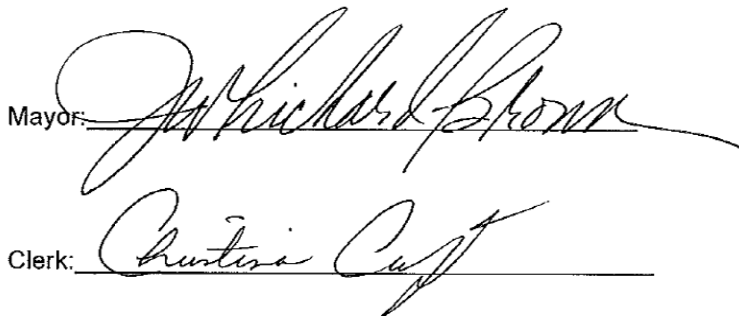 Mayor: Richard Brown
Clerk: Christina